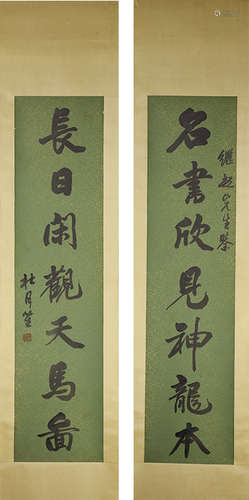 繼起先生鑒
名書欣見神龍本
長日閑觀天馬圖
杜月笙